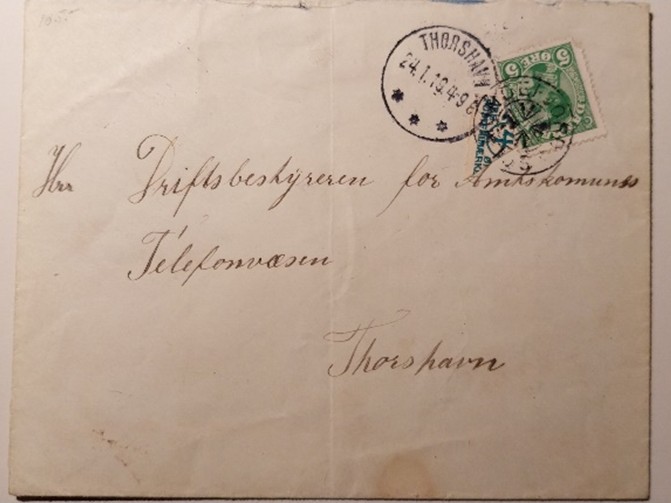 THORSHAVN
24.1.19.4-9 E
5 ØRE 5
4
Hrr Driftsbestyreren for Amtskomunes
Télefonvæsen
Thorshavn